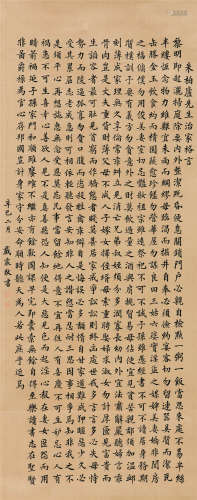 朱柏廬先生治家格言
黎明即起灑掃庭除要內外整潔既昏便息關鎖門戶必親自檢點一粥一飯當思來處不易半絲
半縷恆念物力維艱宜未雨而綢繆毋臨渴而掘井自奉必須儉約宴客切勿留連器具質而潔瓦
缶勝金玉飲食約而精園蔬愈珍饈勿營華屋勿謀良田三姑六婆實淫盜之媒婢美妾嬌非閨房
之福僮僕勿用俊美妻妾切忌豔妝祖宗雖遠祭祀不可不誠子孫雖愚經書不可不讀居身務期
質樸訓子要有義方勿貪意外之財勿飲過量之酒與肩挑貿易毋佔便宜見貧苦親鄰須加溫卹
刻薄成家理無久享倫常乖舛立見消亡兄弟叔姪須分多潤寡長幼內外宜法肅辭嚴聽婦言乖
骨肉豈是丈夫重貲財薄父母不成人子嫁女擇佳婿毋索重聘娶媳求淑女勿計厚奩見富貴而
生諂容者最可恥見貧窮而作驕態者賤莫甚居家戒爭訟訟則終凶處世戒多言言多必失毋恃
勢力而凌逼孤寡勿貪口腹而恣殺生禽乖僻自是悔誤必多頹惰自甘家道難成狎暱惡少久必
受其累屈志老成急則可相依輕聽發言安知非人之譖愬當忍耐三思因事相爭安知非我之不
是須平心暗想施惠無念受恩莫忘凡事當留餘地得意不宜再往人有喜慶不可生妒忌心人有
禍患不可生喜幸心善欲人見不是真善惡恐人知便是大惡見色而起淫心報在妻女匿怨而用
暗箭禍延子孫家門和順雖饔飧不繼亦有餘歡國課早完即囊橐無餘自得至樂讀書志在聖賢
為官心存君國豈計身家守分安命順時聽天為人若此庶乎近焉
辛巳二月 戴 敬書